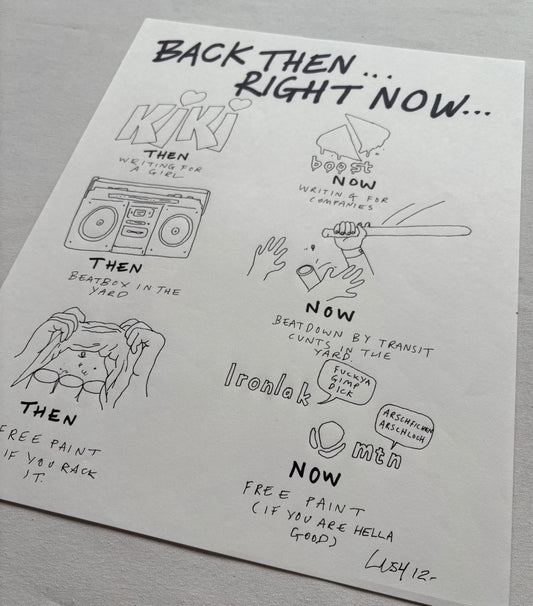 BACK THEN...
RIGHT NOW...
KiKi
THEN
WRITING FOR
A GIRL
boost
NOW
WRITING FOR
COMPANIES
THEN
BEATBOX IN THE
YARD
NOW
BEATDOWN BY TRANSIT
CUNTS IN THE
YARD.
THEN
FREE PAINT
IF YOU RACK
IT.
Ironlak
FUCKYA
GIMP
DICK
mtn
ARSCHFICKEN
ARSCHLOCH
NOW
FREE PAINT
(IF YOU ARE HELLA
GOOD)